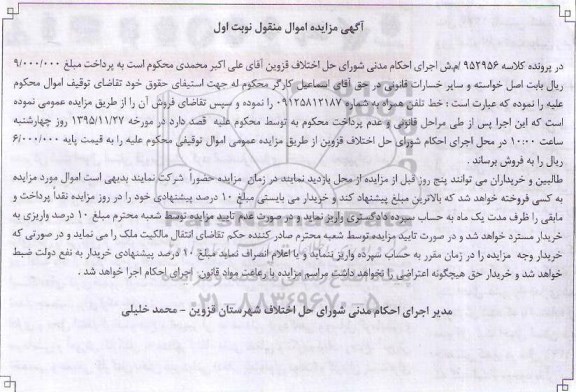 آگهی مزایده اموال منقول نوبت اول
در پرونده کلاسه ۹۵۲۹۵۶ /م.ش اجرای احکام مدنی شورای حل اختلاف قزوین آقای علی اکبر محمدی محکوم است به پرداخت مبلغ ۹/۰۰۰/۰۰۰
ریال بابت اصل خواسته و سایر خسارات قانونی در حق آقای اسماعیل کارگر محکوم له جهت استیفای حقوق خود تقاضای توقیف اموال محکوم
علیه را نموده که عبارت است : خط تلفن همراه به شماره ۰۹۱۲۵۸۱۲۱۸۷ را نموده و سپس تقاضای فروش آن را از طریق مزایده عمومی نموده
است که این اجرا پس از طی مراحل قانونی و عدم پرداخت محکوم به توسط محکوم علیه قصد دارد در مورخه ۱۳۹۵/۱۱/۲۷ روز چهارشنبه
ساعت ۱۰:۰۰ در محل اجرای احکام شورای حل اختلاف قزوین از طریق مزایده عمومی اموال توقیفی محکوم علیه را به قیمت پایه ۶/۰۰۰/۰۰۰
ریال را به فروش برساند .
طالبین و خریداران می توانند پنج روز قبل از مزایده از محل بازدید نمایند در زمان مزایده حضوراً شرکت نمایند بدیهی است اموال مورد مزایده
به کسی فروخته خواهد شد که بالاترین مبلغ پیشنهاد کند و خریدار می بایستی مبلغ ۱۰ درصد پیشنهادی خود را در روز مزایده نقداً پرداخت و
مابقی را ظرف مدت یک ماه به حساب سپرده دادگستری واریز نماید و در صورت عدم تایید مزایده توسط شعبه محترم مبلغ ۱۰ درصد واریزی به
خریدار مسترد خواهد شد و در صورت تایید مزایده توسط شعبه محترم صادر کننده حکم تقاضای انتقال مالکیت ملک را می نماید و در صورتی که
خریدار وجه مزایده را در زمان مقرر به حساب سپرده واریز ننماید و یا اعلام انصراف نماید مبلغ ۱۰ درصد پیشنهادی خریدار به نفع دولت ضبط
خواهد شد و خریدار حق هیچگونه اعتراضی را نخواهد داشت مراسم مزایده با رعایت مواد قانون اجرای احکام اجرا خواهد شد .
۰۲۱-۸۸۳۴۹۶۷۰-۵
مدیر اجرای احکام مدنی شورای حل اختلاف شهرستان قزوین - محمد خلیلی